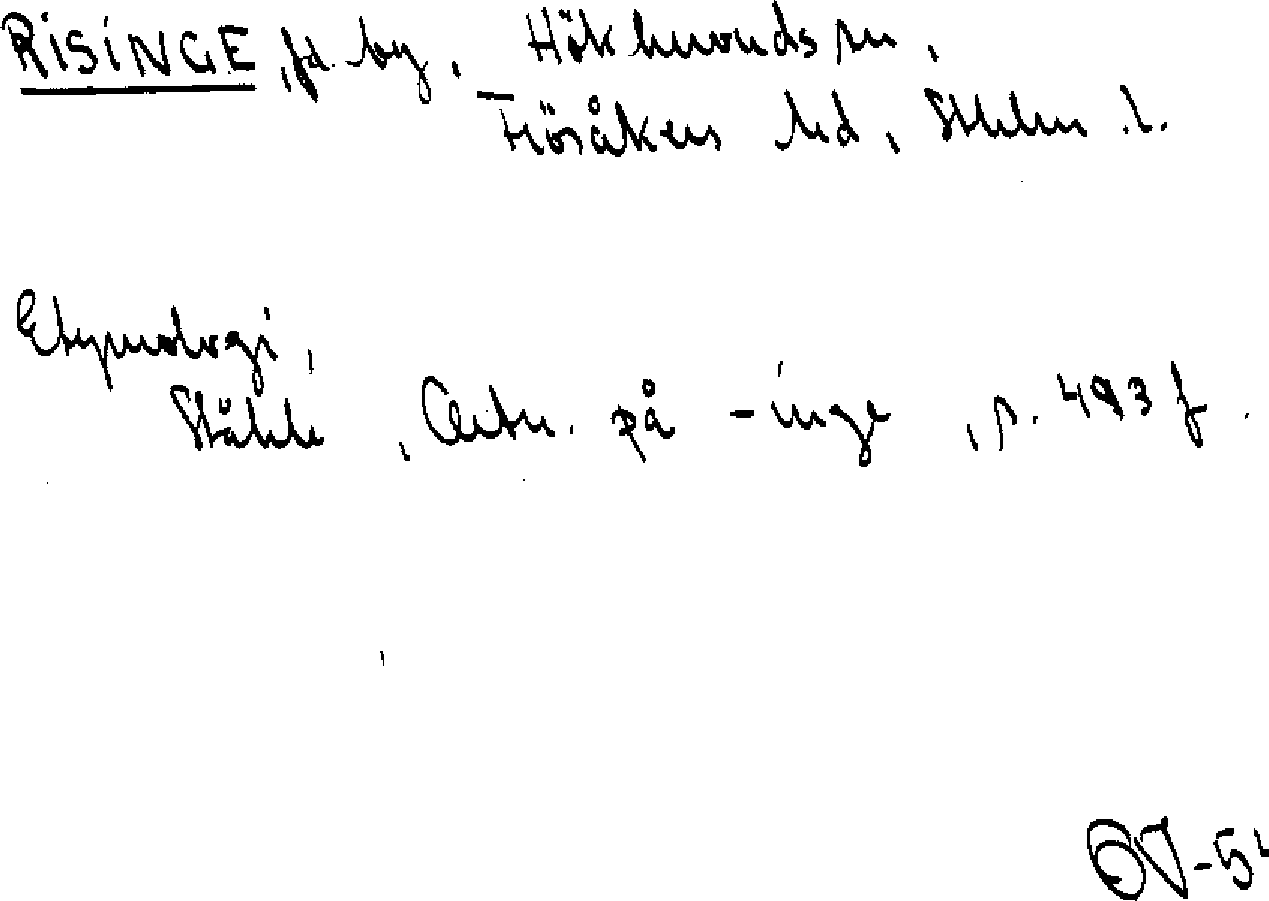 RISINGE, fd. by, Hökhuvuds sn,
Frösåkers hd, Sthlm. l.
Etymologi,
Ståhle, Ortn. på -inge, s. 493 f.